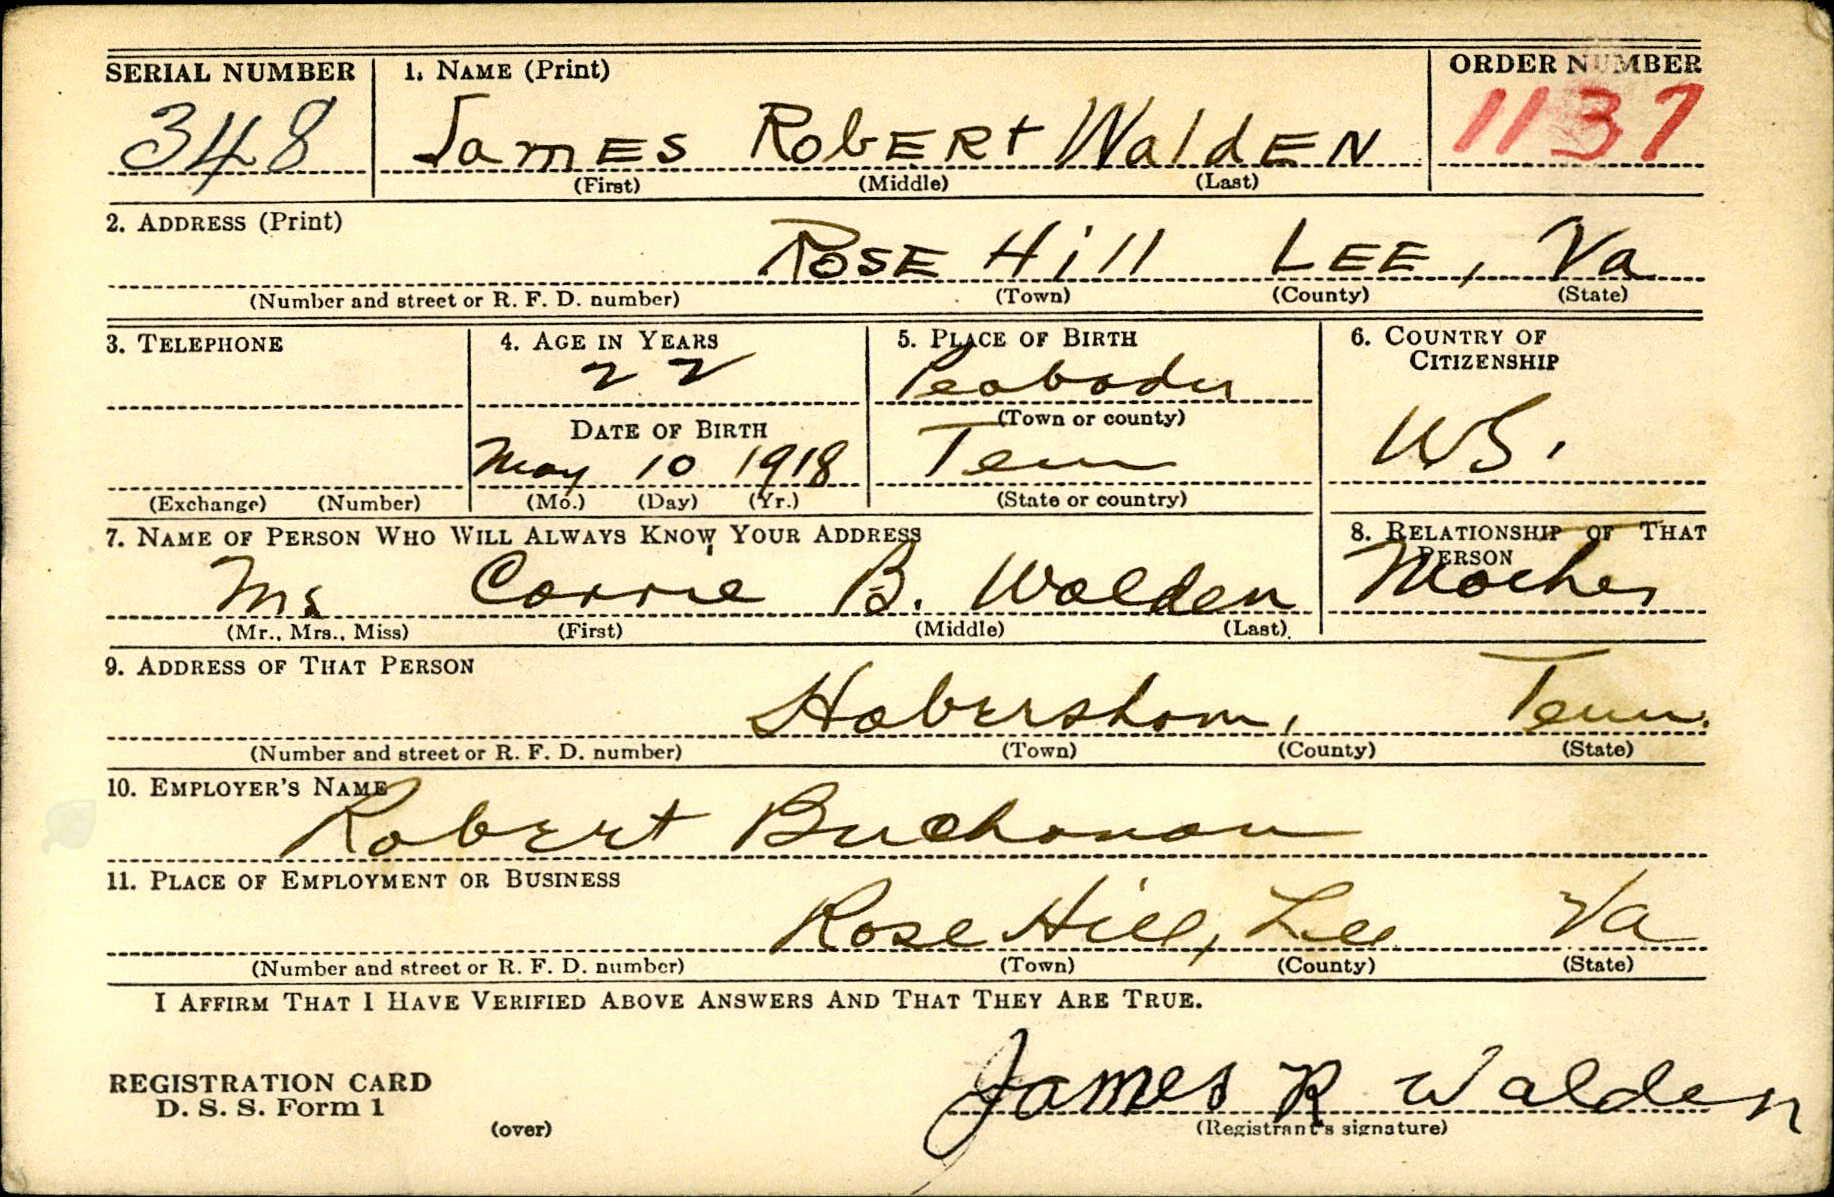 SERIAL NUMBER 1. NAME (Print) ORDER NUMBER
348 James Robert Walden 1137
(First) (Middle) (Last)
2. ADDRESS (Print)
Rose Hill Lee, Va
(Number and street or R. F. D. number) (Town) (County) (State)
3. TELEPHONE 4. AGE IN YEARS 5. PLACE OF BIRTH 6. COUNTRY OF
CITIZENSHIP
22 Peabody
(Town or county)
DATE OF BIRTH
May 10 1918 Tenn U.S.
(Exchange) (Number) (Mo.) (Day) (Yr.) (State or country)
7. NAME OF PERSON WHO WILL ALWAYS KNOW YOUR ADDRESS 8. RELATIONSHIP OF THAT
PERSON
Ms Carrie B. Walden Mother
(Mr., Mrs., Miss) (First) (Middle) (Last)
9. ADDRESS OF THAT PERSON
Habersham, Tenn.
(Number and street or R. F. D. number) (Town) (County) (State)
10. EMPLOYER'S NAME
Robert Buchanan
11. PLACE OF EMPLOYMENT OR BUSINESS
Rose Hill, Lee Va
(Number and street or R. F. D. number) (Town) (County) (State)
I AFFIRM THAT I HAVE VERIFIED ABOVE ANSWERS AND THAT THEY ARE TRUE.
James R Walden
REGISTRATION CARD
D. S. S. Form 1
(over) (Registrant's signature)